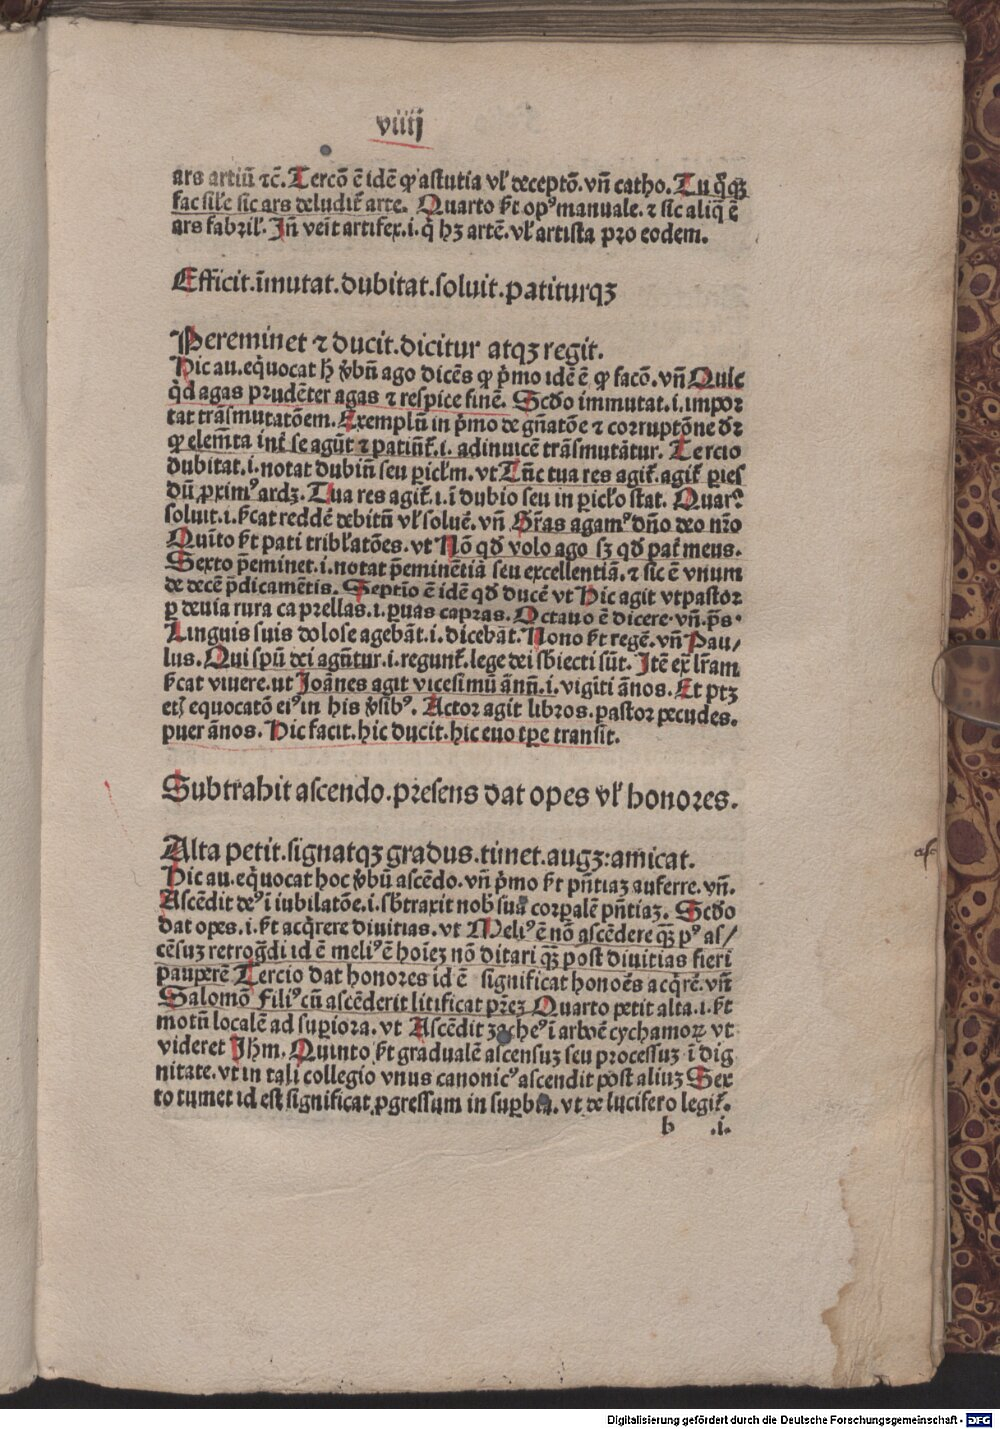 viiij
ars artiū ⁊cē. Tercō ē idē ꝙ astutia vł deceptō. vñ catho. Tu q̊qꝫ
fac siłe sic ars deludit᷑ arte. Quarto ſt op⁹ manuale. ⁊ sic aliq̄ ē
ars fabrił. Jñ veīt artifex .i. q̇ hꝫ artē. vł artista pro eodem.
Efficit. īmutat. dubitat. soluit. patiturqꝫ
Pereminet ⁊ ducit. dicitur atqꝫ regit.
Hic au. eq̇uocat h̄ v̓bū ago dicēs ꝙ p̓mo idē ē ꝙ facō. vñ Quic
q̇d agas prudēter agas ⁊ respice finē. Scd̓o immutat .i. impor
tat trāsmutatōem. Exemplū in p̓mo de gn̄atōe ⁊ corruptōne dr̄
ꝙ elem̄ta int̓ se agūt ⁊ patiūt᷑ .i. adinuicē trāsmutātur. Tercio
dubitat .i. notat dubiū seu picłm. vt Tūc tua res agit᷑. agit᷑ ꝑies
dū ꝓxim⁹ ardꝫ. Tua res agit᷑ .i. ī dubio seu in ꝑicło stat. Quar⁹
soluit .i. ſcat reddē debitū vł soluē. vñ Gr̄as agam⁹ dn̄o deo nr̄o
Quīto ſt pati tribłatōes. vt Nō qd̓ volo ago sꝫ qd̓ pat᷑ meus.
Sexto p̄eminet .i. notat p̄eminētiā seu excellentiā. ⁊ sic ē vnum
de decē p̄dicamētis. Septīo ē idē qd̓ ducē vt Hic agit vt pastor
ꝑ deuia rura caprellas .i. ꝑuas capras. Octauo ē dicere. vñ. p̄s.
Linguis suis dolose agebāt .i. dicebāt. Nono ſt regē. vñ Pau/
lus. Qui spū dei agūtur .i. regunt᷑. lege dei sb̓iecti sūt. Jtē ex lr̄am
ſcat viuere. ut Joānes agit vicesimū ānū .i. vigīti ānos. Et ptꝫ
etꝫ equocatō ei⁹ in his v̓sib⁹. Actor agit libros. pastor pecudes.
puer ānos. Hic facit. hic ducit. hic euo tꝑe transit.
Subtrahit ascendo. presens dat opes vł honores.
Alta petit. signatqꝫ gradus. timet. augꝫ: amicat.
Hic au. eq̇uocat hoc v̓bū ascēdo. vñ p̓mo ſt pn̄tiaꝫ auferre. vñ.
Ascēdit de⁹ ī iubilatōe .i. sb̓traxit nob̓ suā corꝑalē pn̄tiaꝫ. Scd̓o
dat opes .i. ſt acq̇rere diuitias. vt Meli⁹ ē nō ascēdere qꝫ p⁹ as/
cēsuꝫ retrog̓di id ē meli⁹ ē hoīeꝫ nō ditari qꝫ post diuitias fieri
pauperē Tercio dat honores id ē significat honoēs acq̇rē. vñ
Salomō Fili⁹ cū ascēderit litificat pr̄eꝫ Quarto petit alta .i. ſt
motū localē ad suꝑiora. vt Ascēdit zache⁹ ī arbōē cychamoꝝ vt
videret Jhm. Quinto ſt gradualē ascensuꝫ seu processuꝫ ī dig
nitate. vt in tali collegio vnus canonic⁹ ascendit post aliuꝫ Sex
to tumet id est significat ꝓgressum in suꝑbia. vt de lucifero legit᷑.
b .i.
as
Digitalisierung gefördert durch die Deutsche Forschungsgemeinschaft - DFG